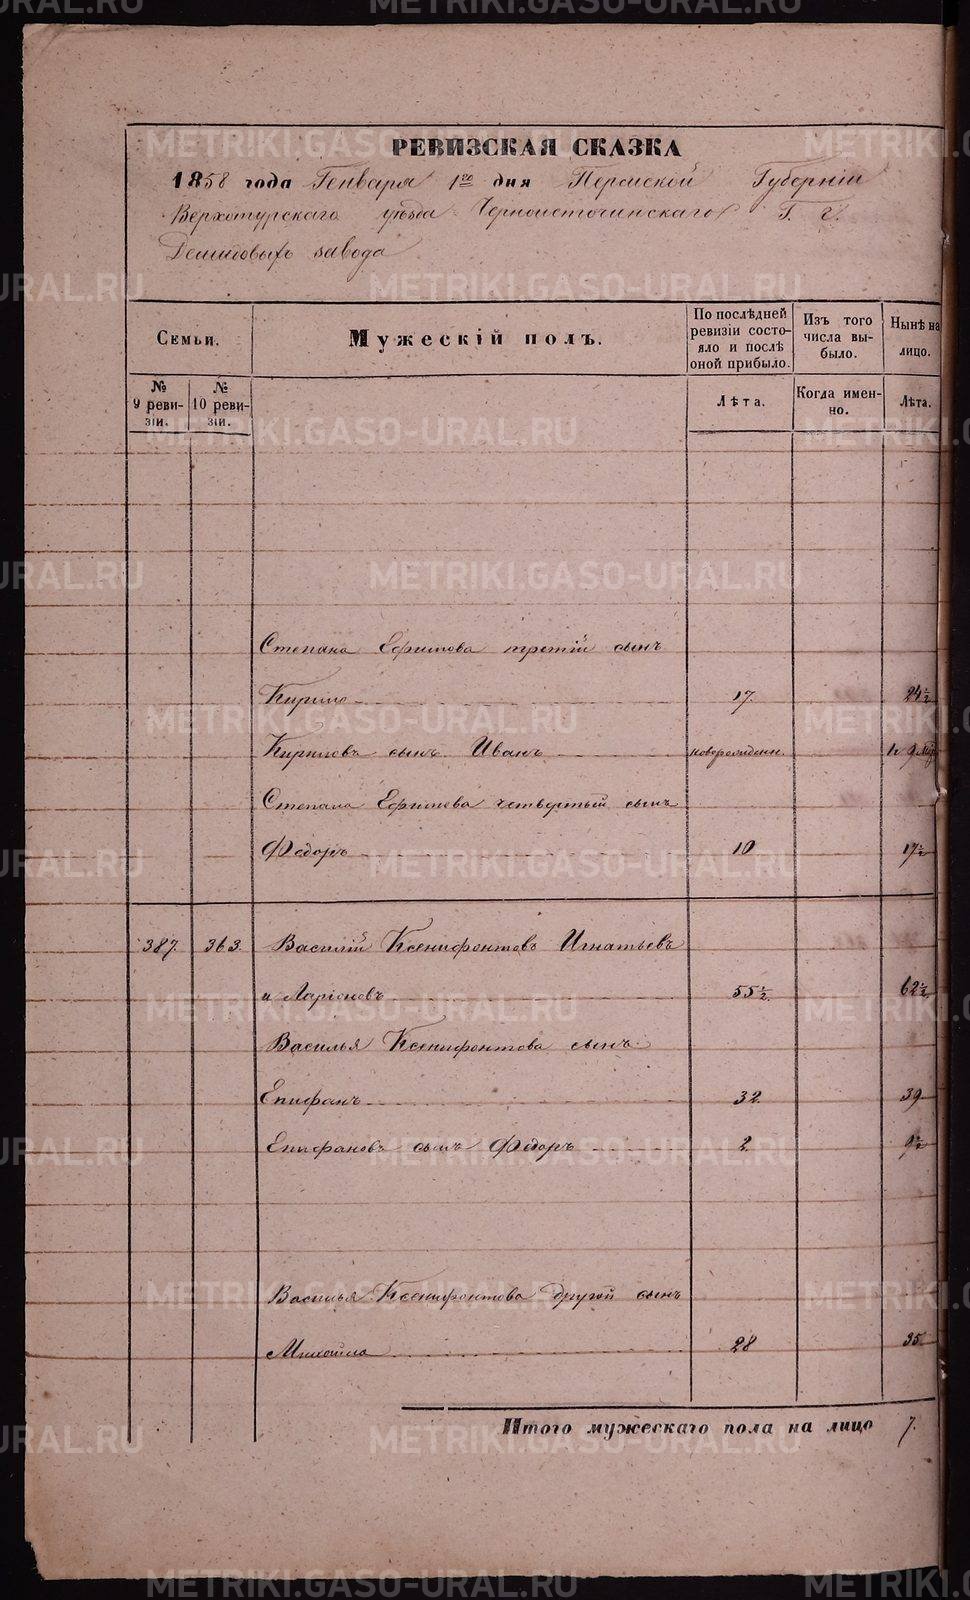 РЕВИЗСКАЯ СКАЗКА
1858 года Генваря 1го дня Пермской Губерніи
Верхотурскаго уѣзда Черноисточинскаго Г. г.
Демидовыхъ завода
Семьи.
Мужескій полъ.
По послѣдней ревизіи состояло и послѣ оной прибыло.
Изъ того числа выбыло.
Нынѣ на лицо.
№ 9 ревизіи.
№ 10 ревизіи.
Лѣта.
Когда именно.
Лѣта.
Степана Ефимова третій сынъ
Кирило 17. 24½
Кириловъ сынъ Иванъ новорожденн.
Степана Ефимова четвертый сынъ
Федоръ 10 17½
387. 363. Василій Ксенифонтовъ Игнатьевъ
и Ларіоновъ 55½. 62½
Василья Ксенифонтова сынъ
Епифанъ 32. 39
Епифановъ сынъ Федоръ 2. 9½
Василья Ксенифонтова другой сынъ
Михайло 28 35.
Итого мужескаго пола на лицо 7.
METRIKI.GASO-URAL.RU